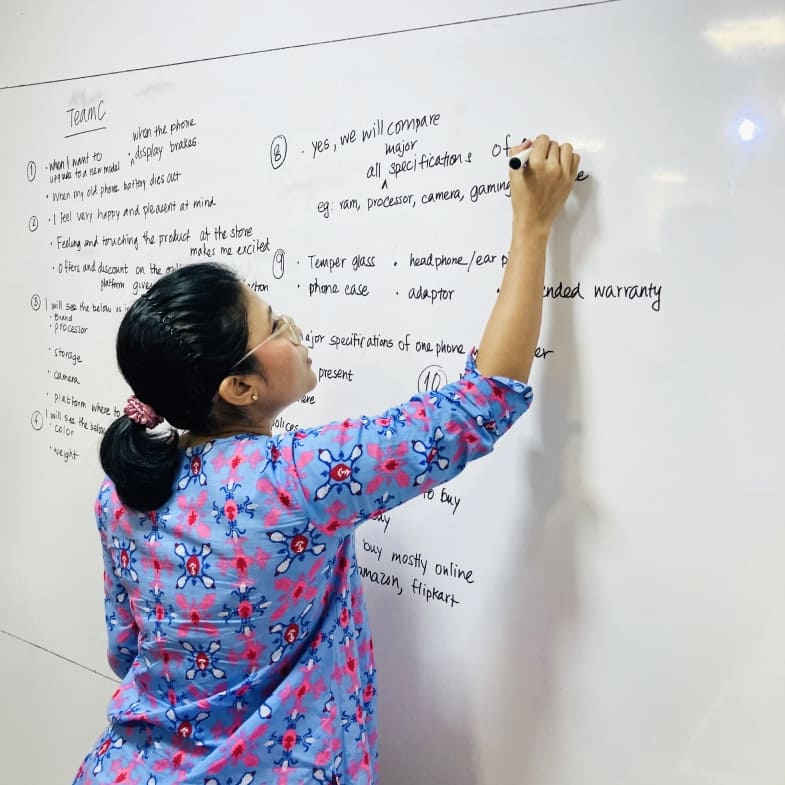 Team C
① · When I want to upgrade to a new model
· when the phone display brakes.
· When my old phone battery dies out
② · I feel very happy and pleasent at mind
· Feeling and touching the product at the store makes me excited
· Offers and discount on the
platform
③ I will see the below as
· Brand
· processor
· storage
· camera
· platform where to
④ I will see the below
· color
· weight
⑧ · yes, we will compare
all major specifications of
eg: ram, processor, camera, gaming
⑨ · Temper glass · headphone/ear
· phone case · adaptor · warranty
specifications of one phone
present
⑩
to buy
buy mostly online
amazon, flipkart